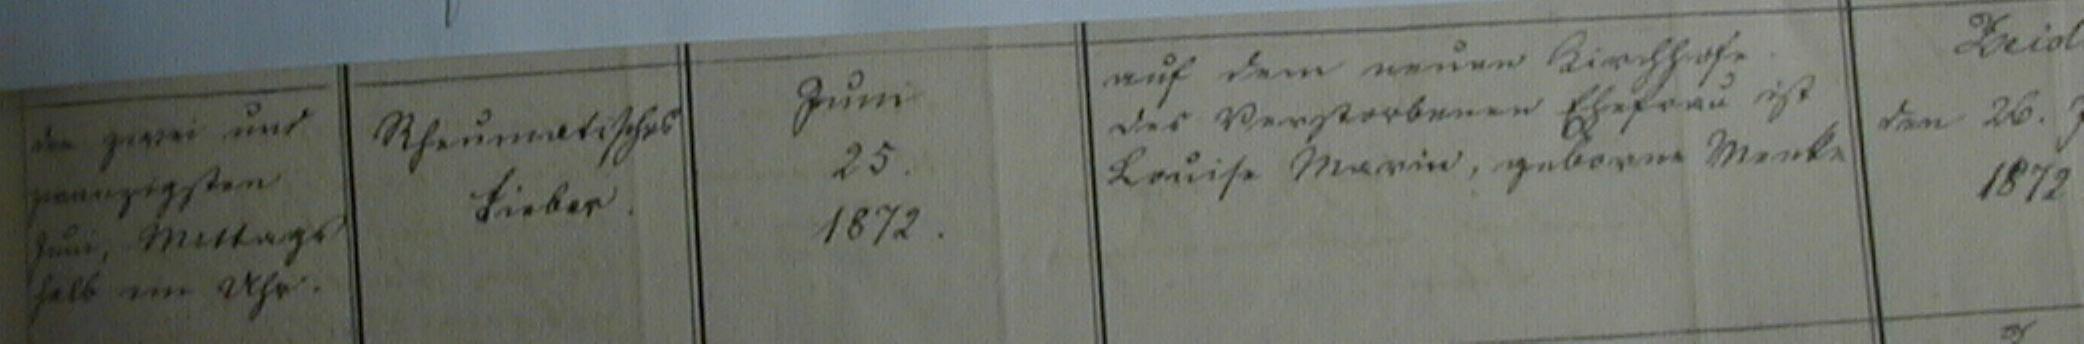 den zwei und
zwanzigsten
Juni, Mittags
halb ein Uhr.
Rheumatisches
Fieber.
Juni
25.
1872.
auf dem neuen Kirchhofe.
des Verstorbenen Ehefrau ist
Louise Marie, geborne Menke
den 26. J
1872